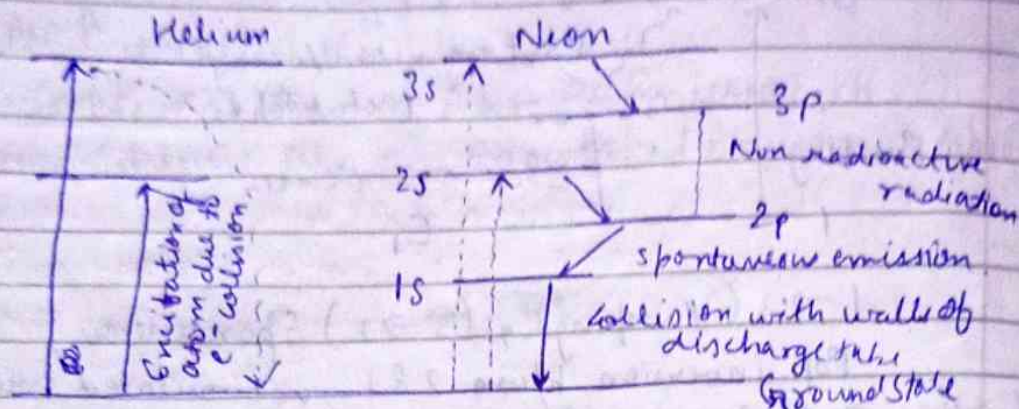 Helium Neon
3s
3p
Non radioactive
radiation
2s
2p
spontaneous emission
1s
Collision with walls of
discharge tube
Ground State
Exitation of
atom due to
e⁻ collision